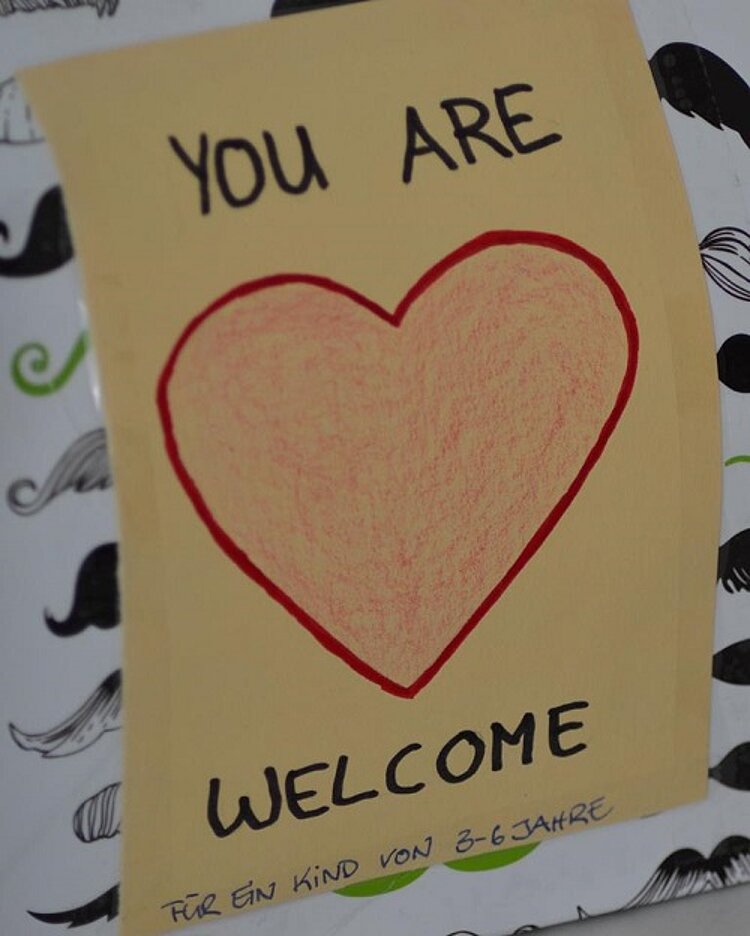 YOU ARE
WELCOME
FÜR EIN KIND VON 3-6 JAHRE